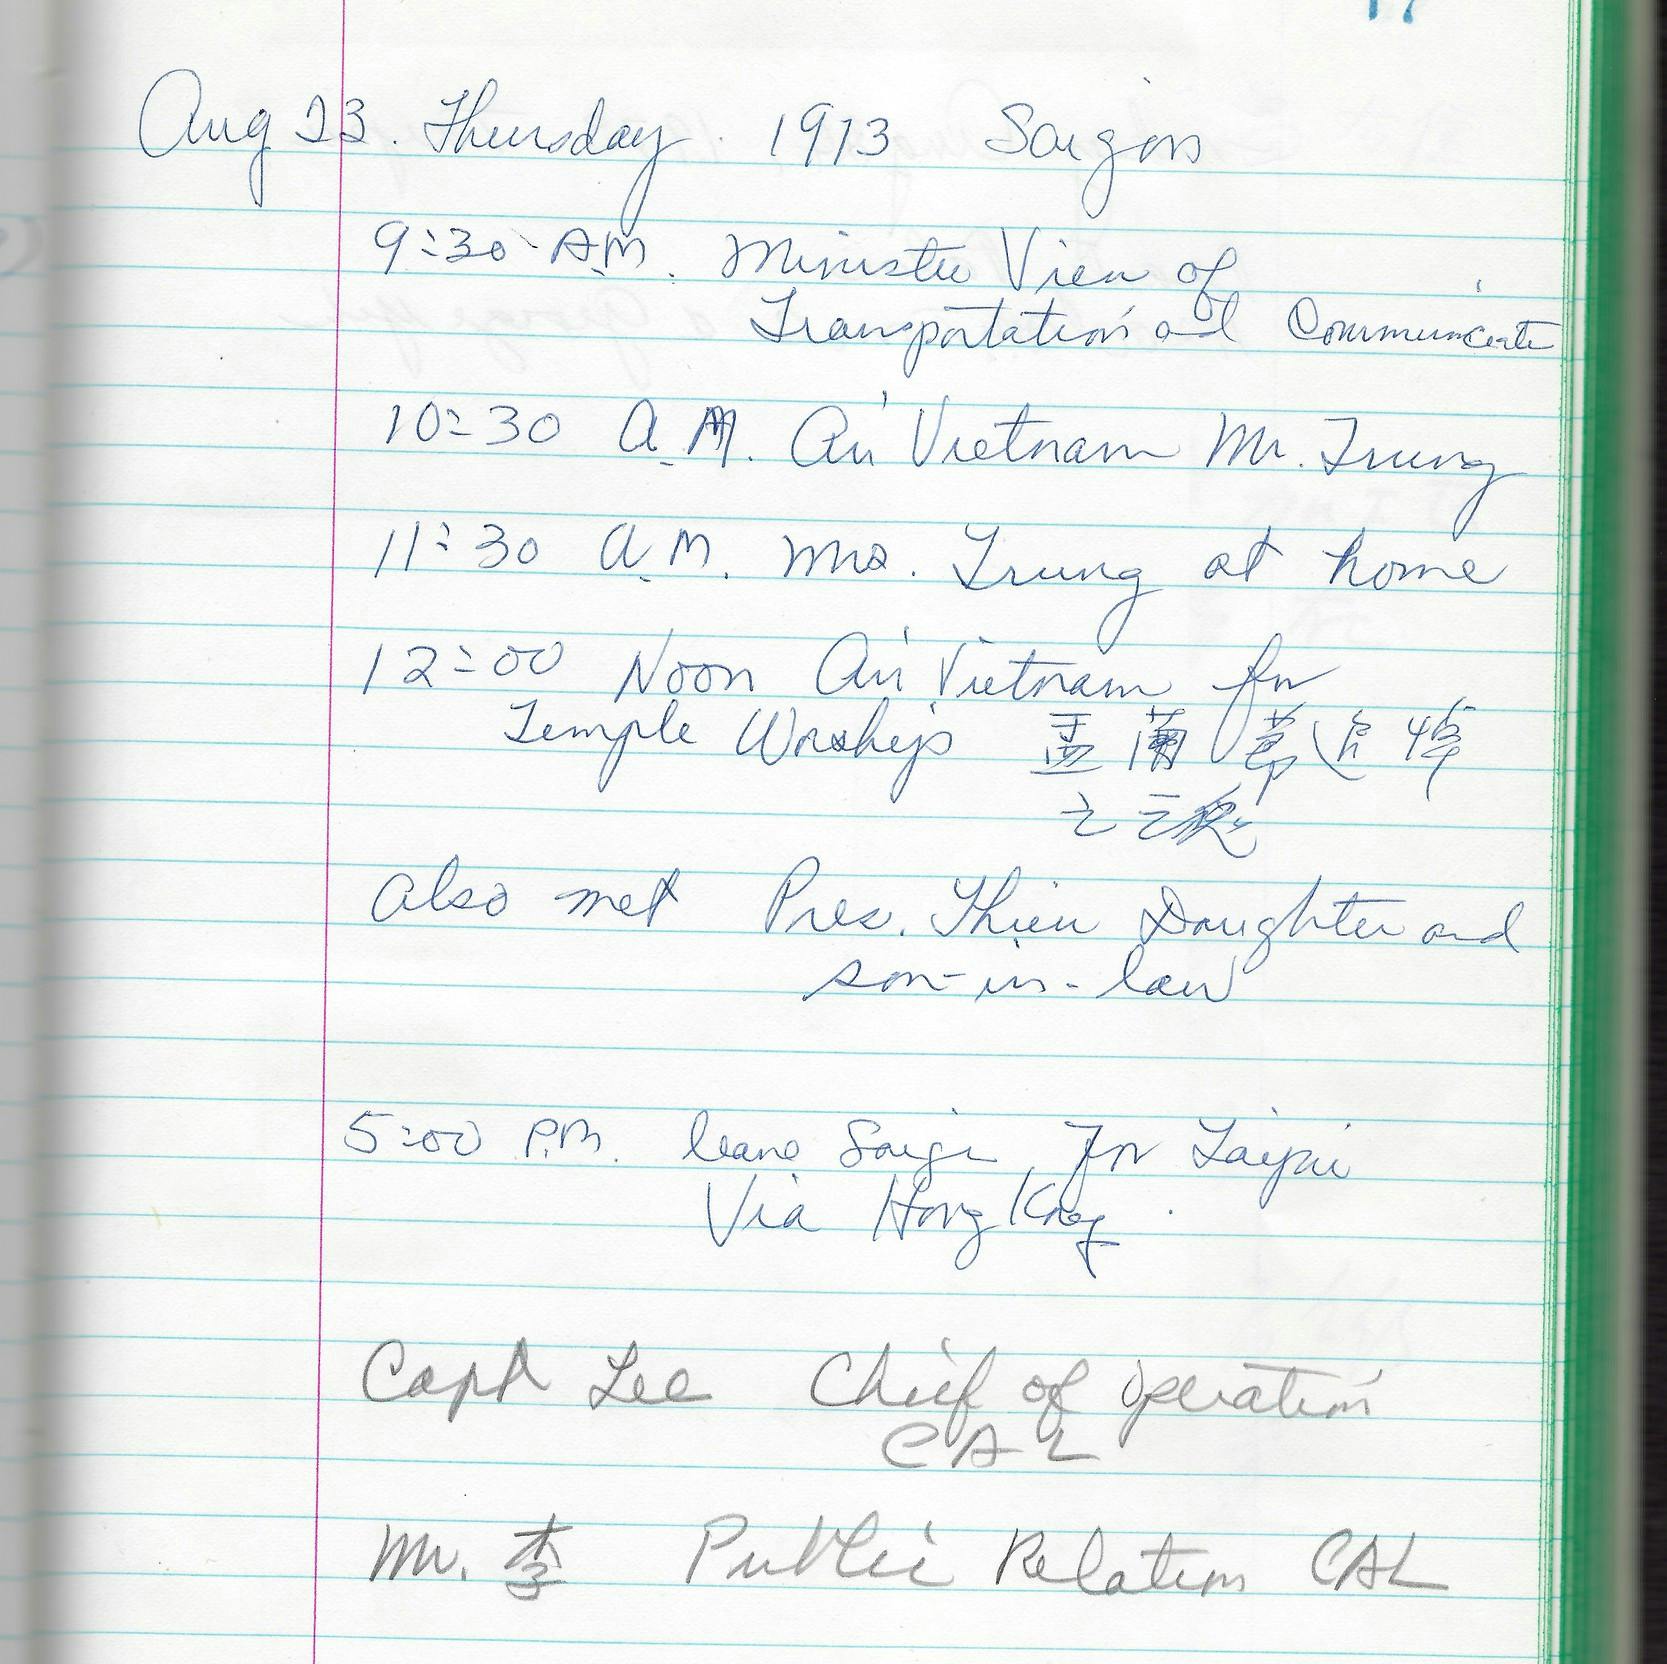 17
Aug 23. Thursday. 1973 Saigon
9:30 A.M. Minister Vien of
Transportation and Communicate
10:30 A.M. Air Vietnam Mr. Trung
11:30 A.M. Mrs. Trung at home
12:00 Noon Air Vietnam for
Temple Worship 盂蘭節追悼
之
also met Pres. Thieu Daughter and
son-in-law
5:00 P.M. leave Saigon for Taipei
Via Hong Kong.
Capt Lee Chief of Operation
CAL
Mr. 李 Public Relation CAL